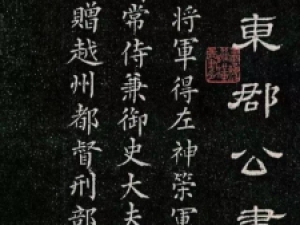 東郡公書
将軍得左神策軍
常侍兼御史大夫
贈越州都督刑部